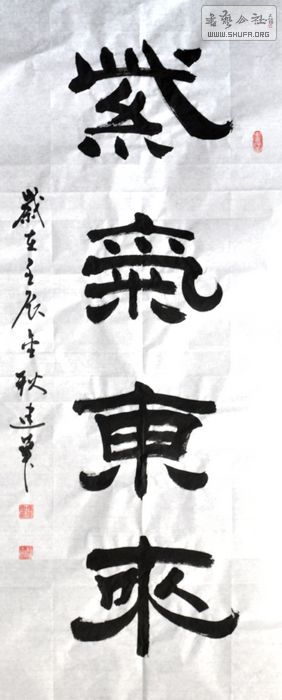 紫氣東來
歲在壬辰年耿建華
书艺公社
WWW.SHUFA.ORG